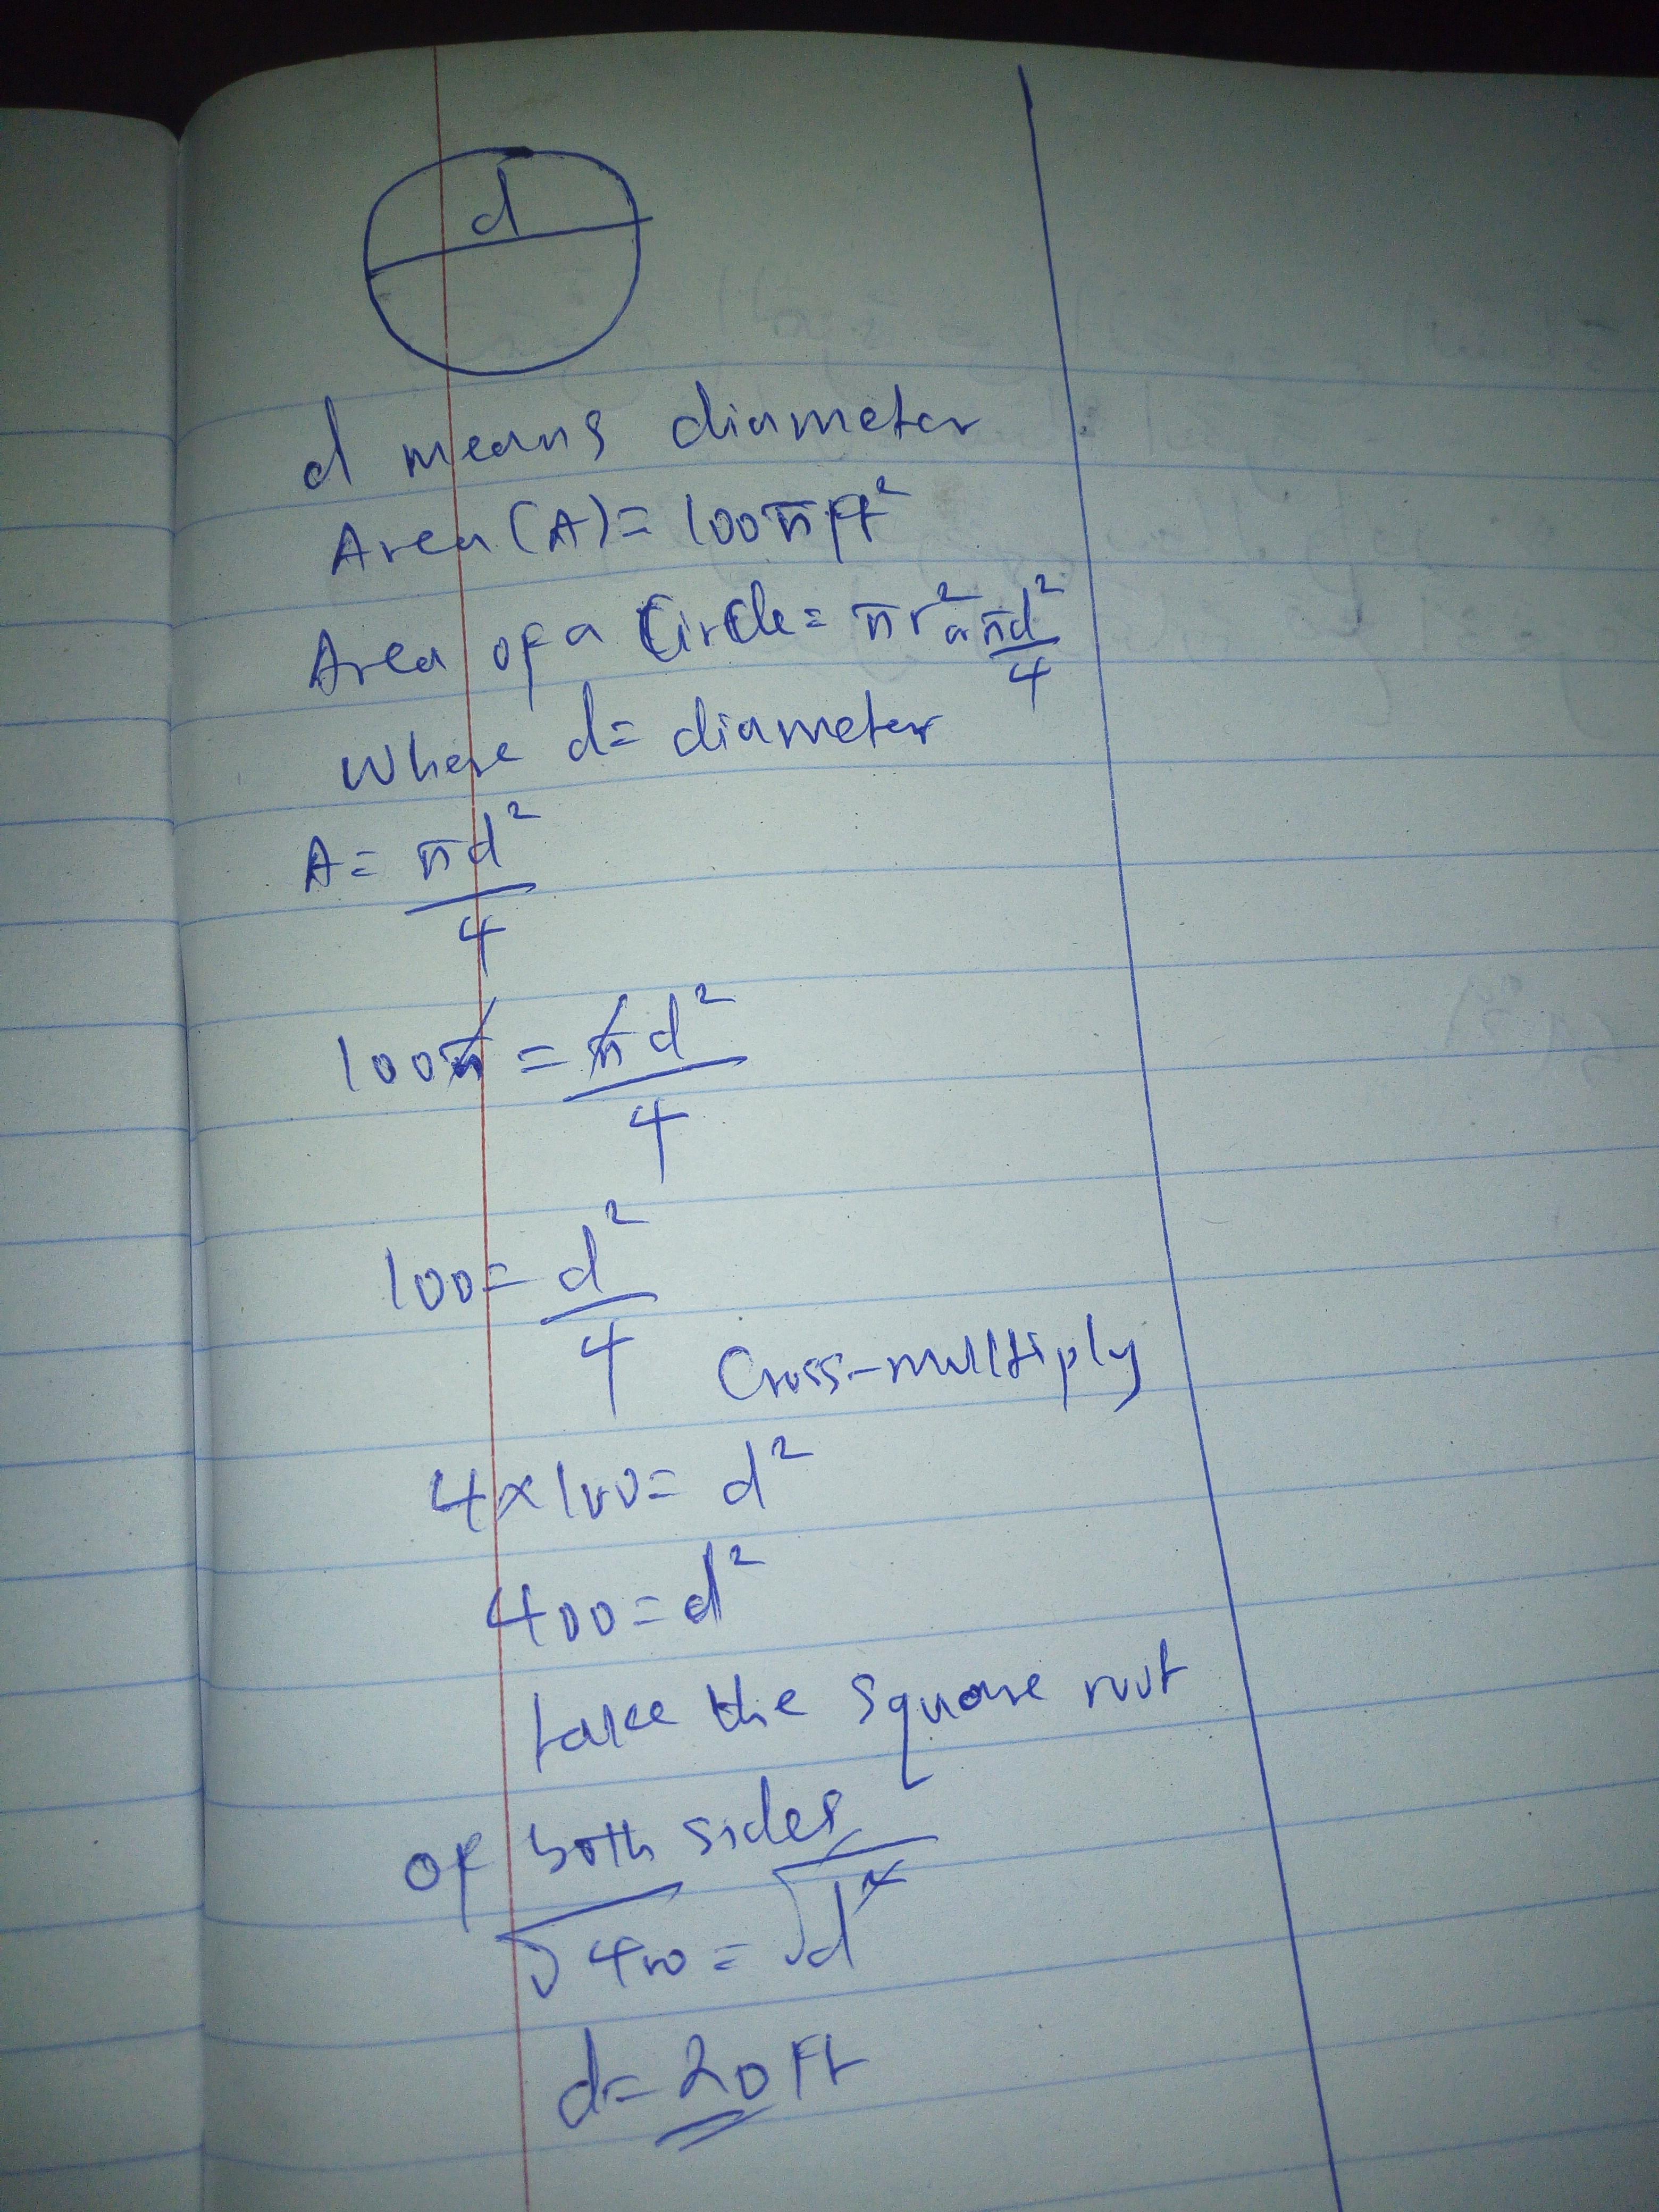 d
d means diameter
Area (A) = 100π ft²
Area of a Circle = πr² or πd²/4
Where d = diameter
A = πd²/4
100π = πd²/4
100 = d²/4
Cross-multiply
4 × 100 = d²
400 = d²
take the square root
of both sides
√400 = √d²
d = 20 ft